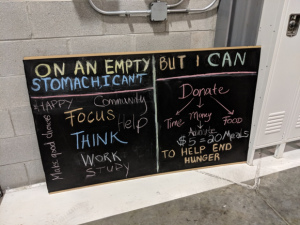 ON AN EMPTY
STOMACH, I CAN'T
HAPPY Community
FOCUS
Help
THINK
WORK
STUDY
Make good choices
BUT I CAN
Donate
Time Money FOOD
$5 = 20 Meals
TO HELP END
HUNGER